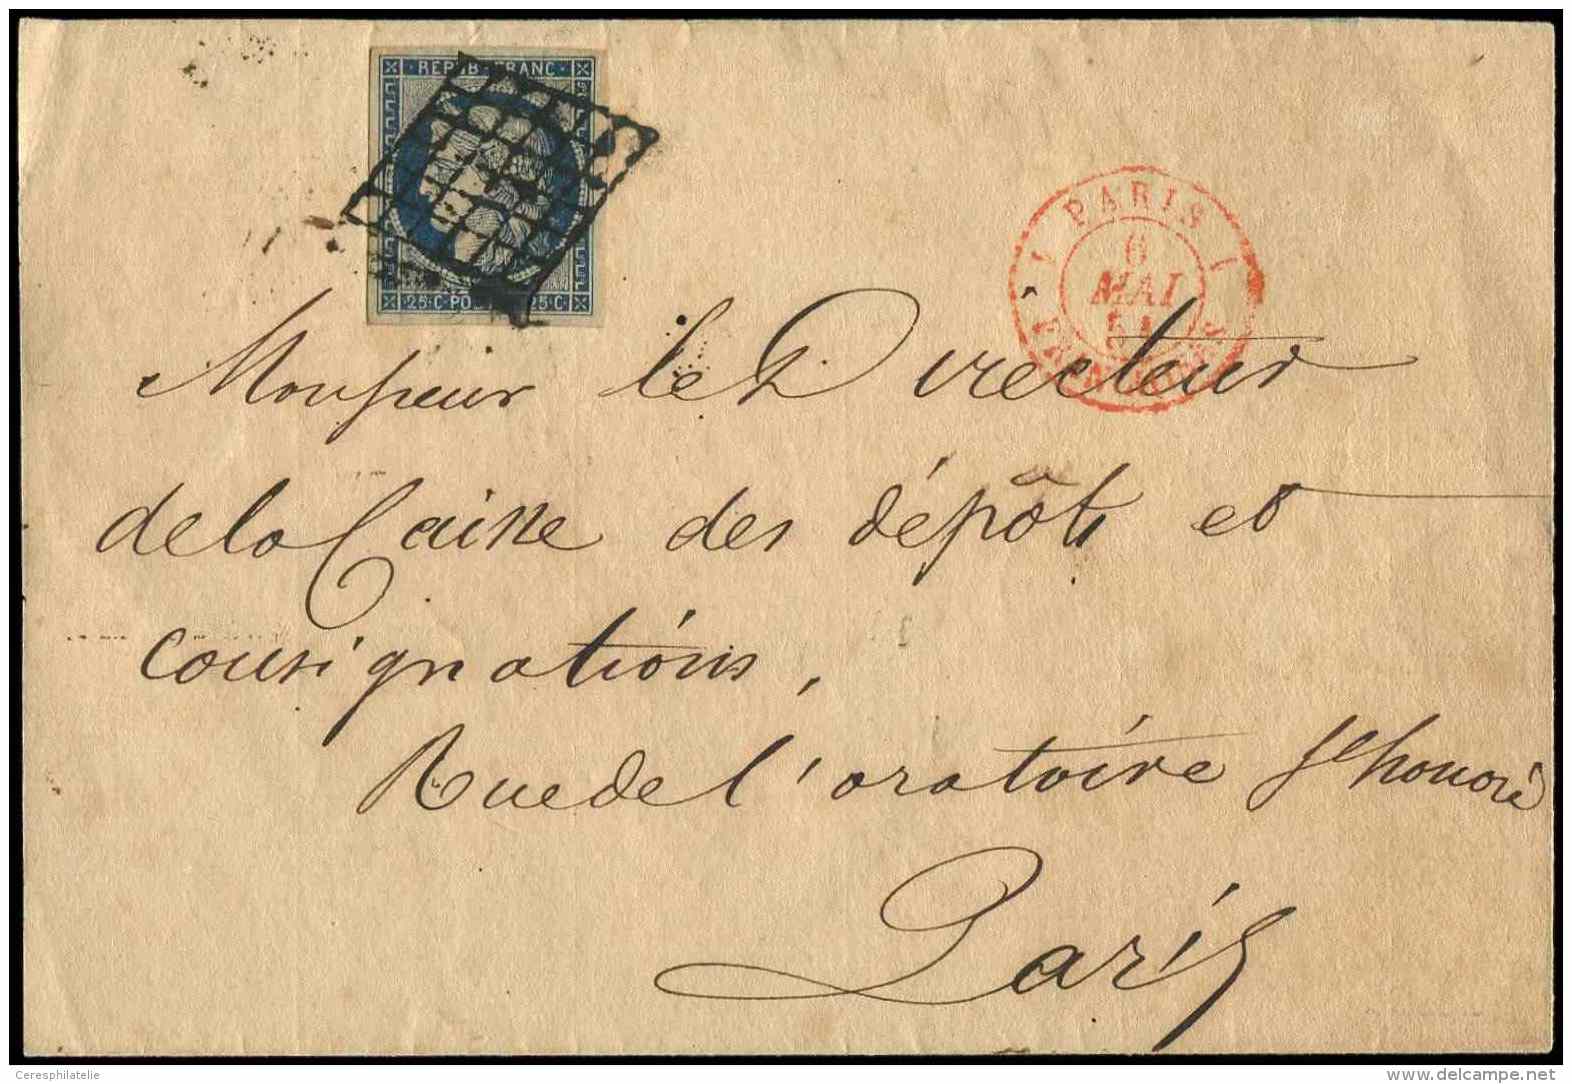 REPUB·FRANC
25·C·PO 25·C·
PARIS
6
MAI
51
Monsieur le Directeur
de la Caisse des dépôts et
consignations,
Rue de l'oratoire St honoré
Paris
Ceresphilatelie
www.delcampe.net